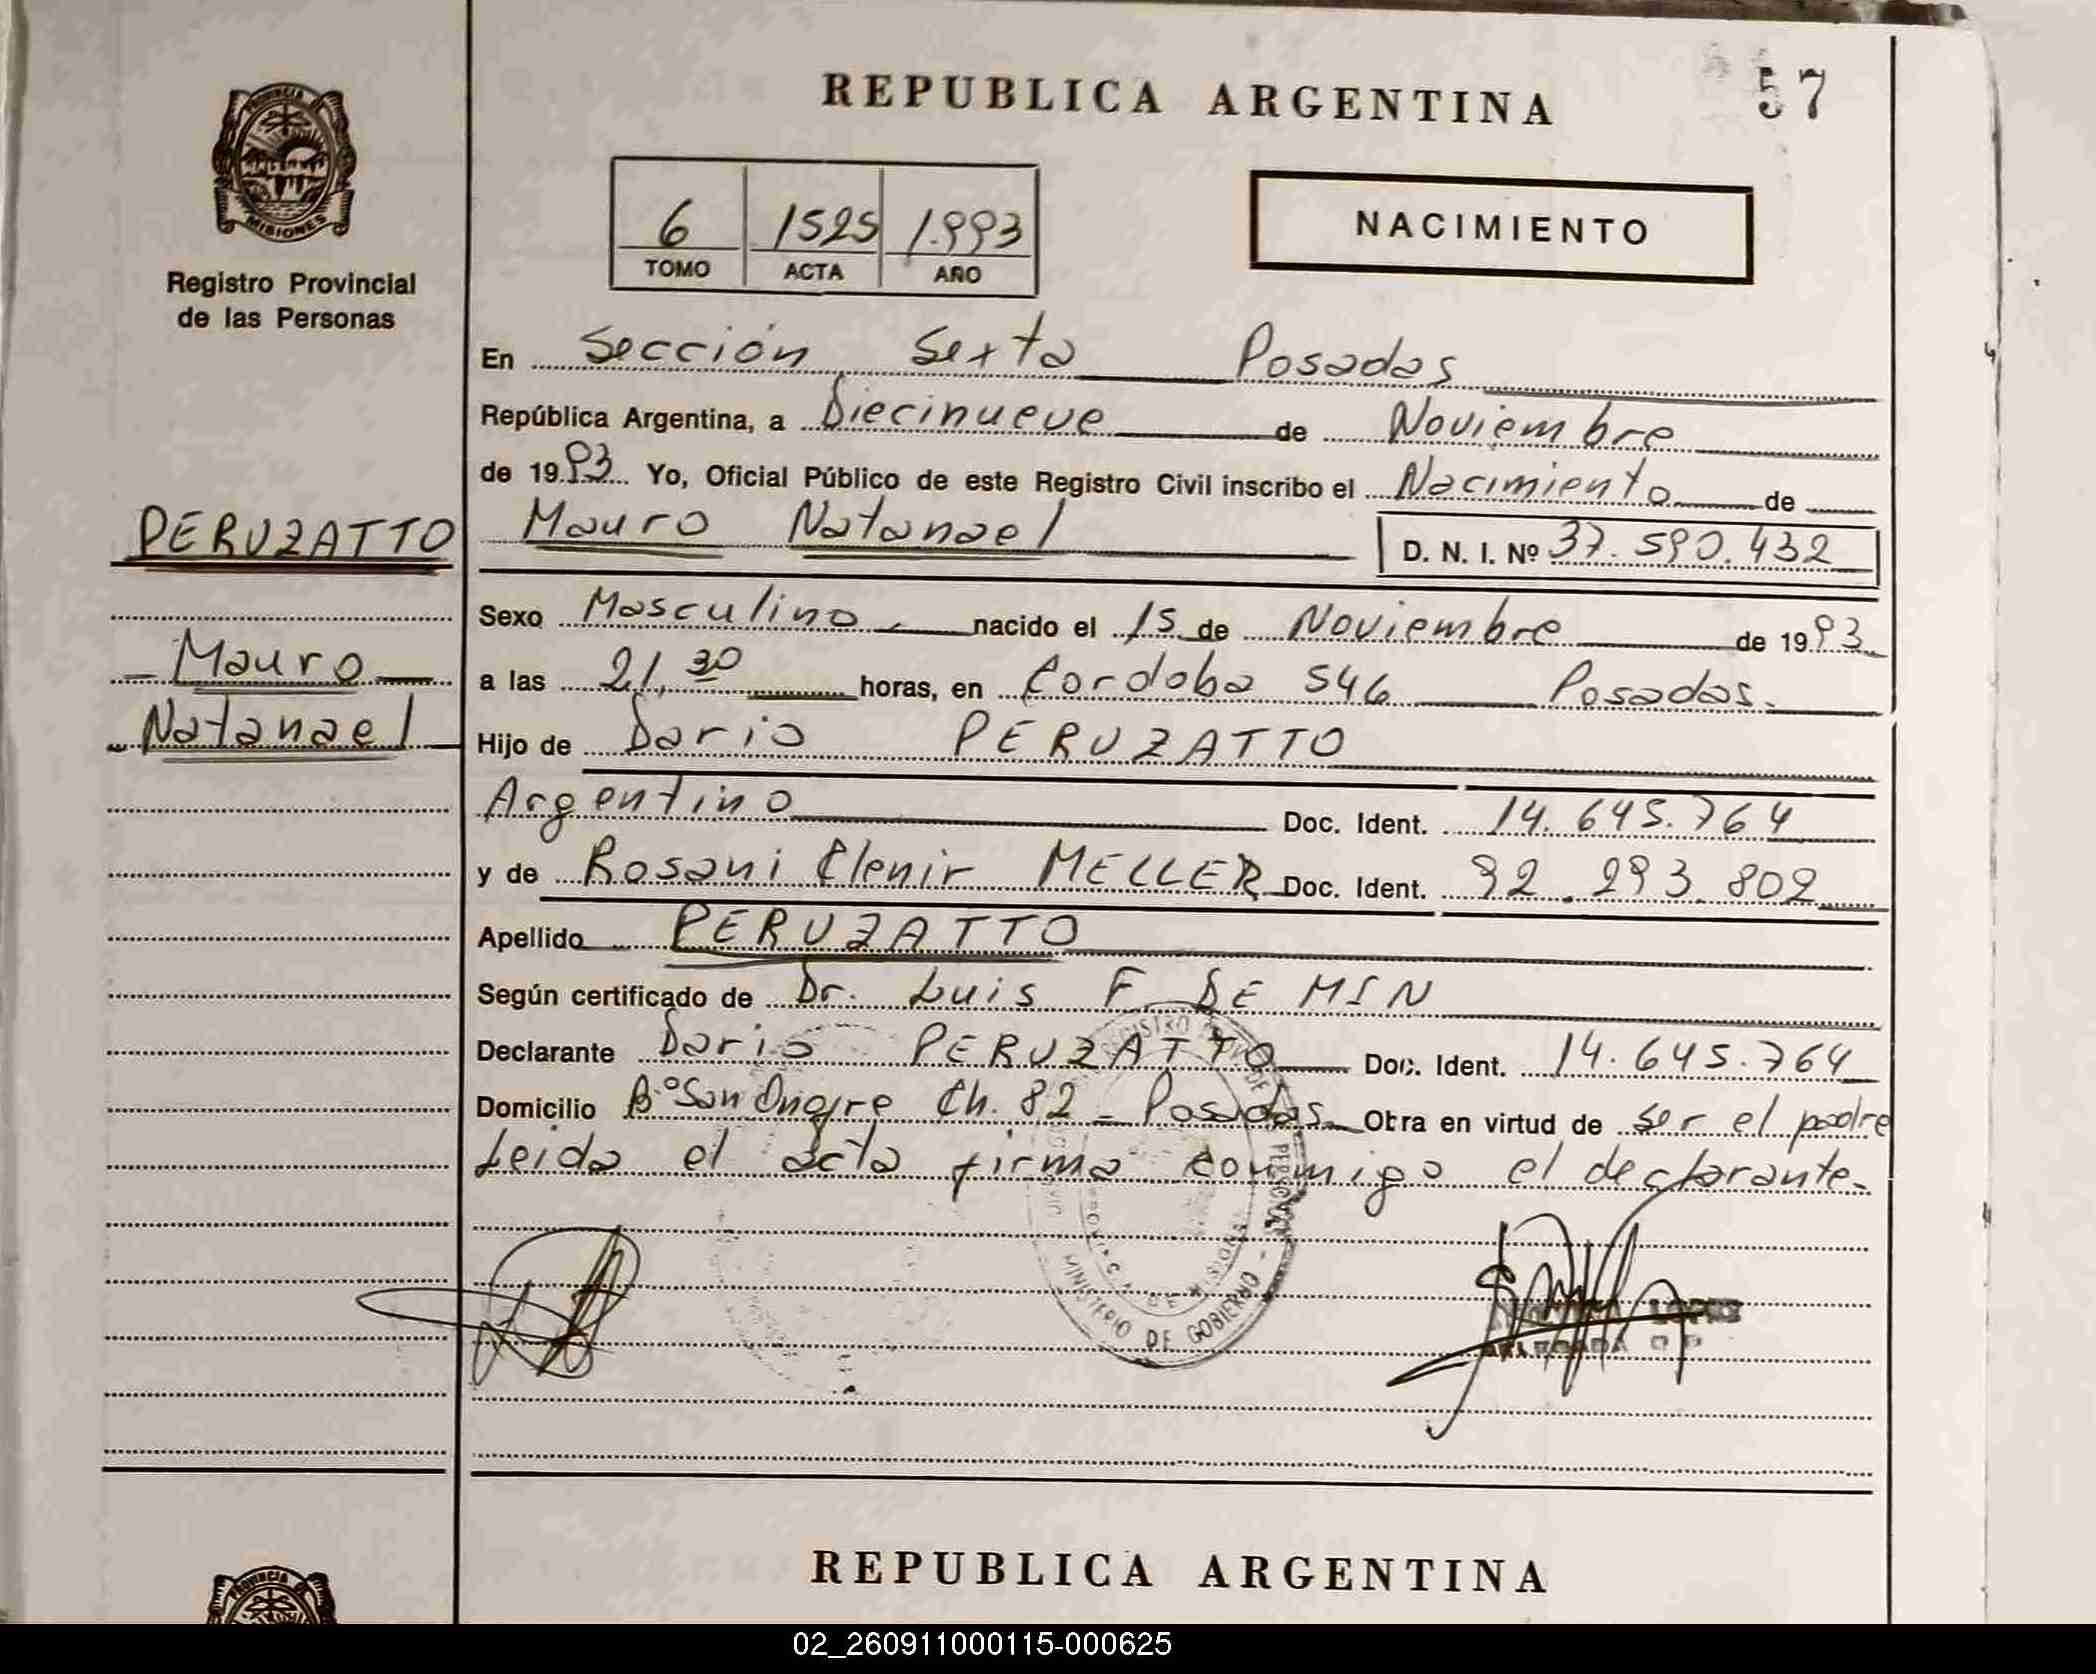 REPUBLICA ARGENTINA
57
PROVINCIA DE
MISIONES
Registro Provincial
de las Personas
6 1525 1.993
TOMO ACTA AÑO
NACIMIENTO
En Sección Sexta Posadas
República Argentina, a Diecinueve de Noviembre
de 1993 Yo, Oficial Público de este Registro Civil inscribo el Nacimiento de
PERUZATTO
Mauro Natanael D. N. I. Nº 37.590.432
Sexo Masculino, nacido el 15 de Noviembre de 1993
Mauro
a las 21,30 horas, en Cordoba 546 Posadas.
Natanael
Hijo de Dario PERUZATTO
Argentino Doc. Ident. 14.645.764
y de Rosani Clenir MELLER Doc. Ident. 92.293.802
Apellido PERUZATTO
Según certificado de Dr. Luis F. DE MIN
Declarante Dario PERUZATTO Doc. Ident. 14.645.764
Domicilio Bº San Onofre Ch. 82 - Posadas Otra en virtud de ser el padre
Leida el acta firma conmigo el declarante.
MINISTERIO DE GOBIERNO
LOPEZ
DELEGADA
REPUBLICA ARGENTINA
02_260911000115-000625